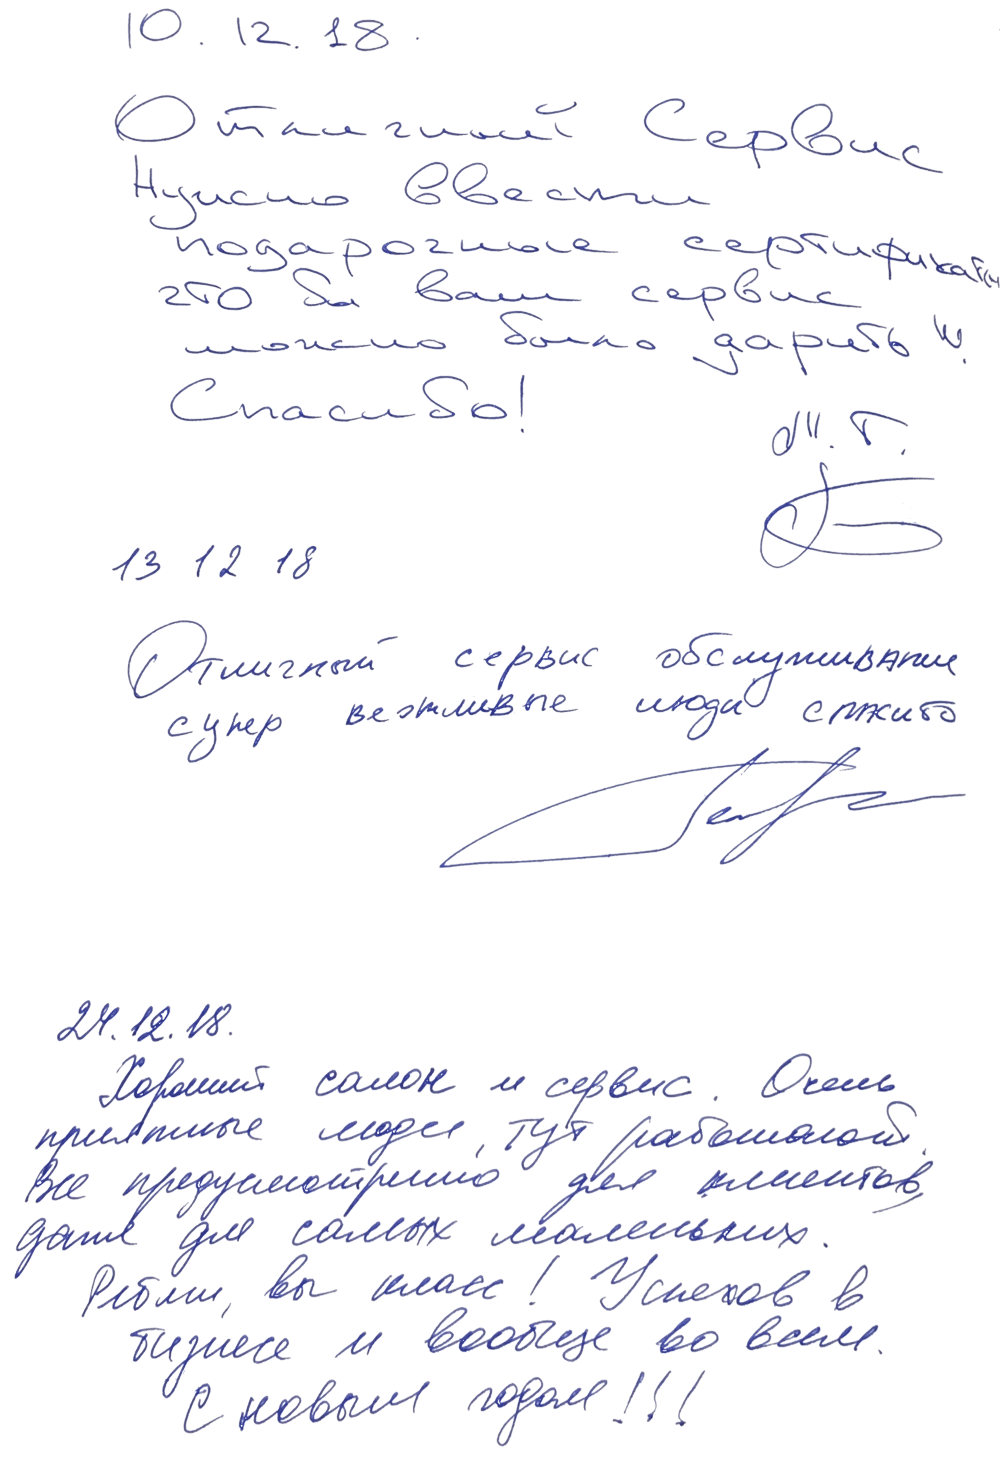 10.12.18.
Отличный Сервис
Нужно ввести
подарочные сертификаты
что бы ваш сервис
можно было дарить!!!
Спасибо!
М.Г.
13 12 18
Отличный сервис обслуживание
супер вежливые люди
24.12.18.
Хороший салон и сервис. Очень
приятные люди, тут работают.
Все предусмотрено для клиентов,
даже для самых маленьких.
Ребята, вы класс! Успехов в
бизнесе и вообще во всем.
С новым годом!!!